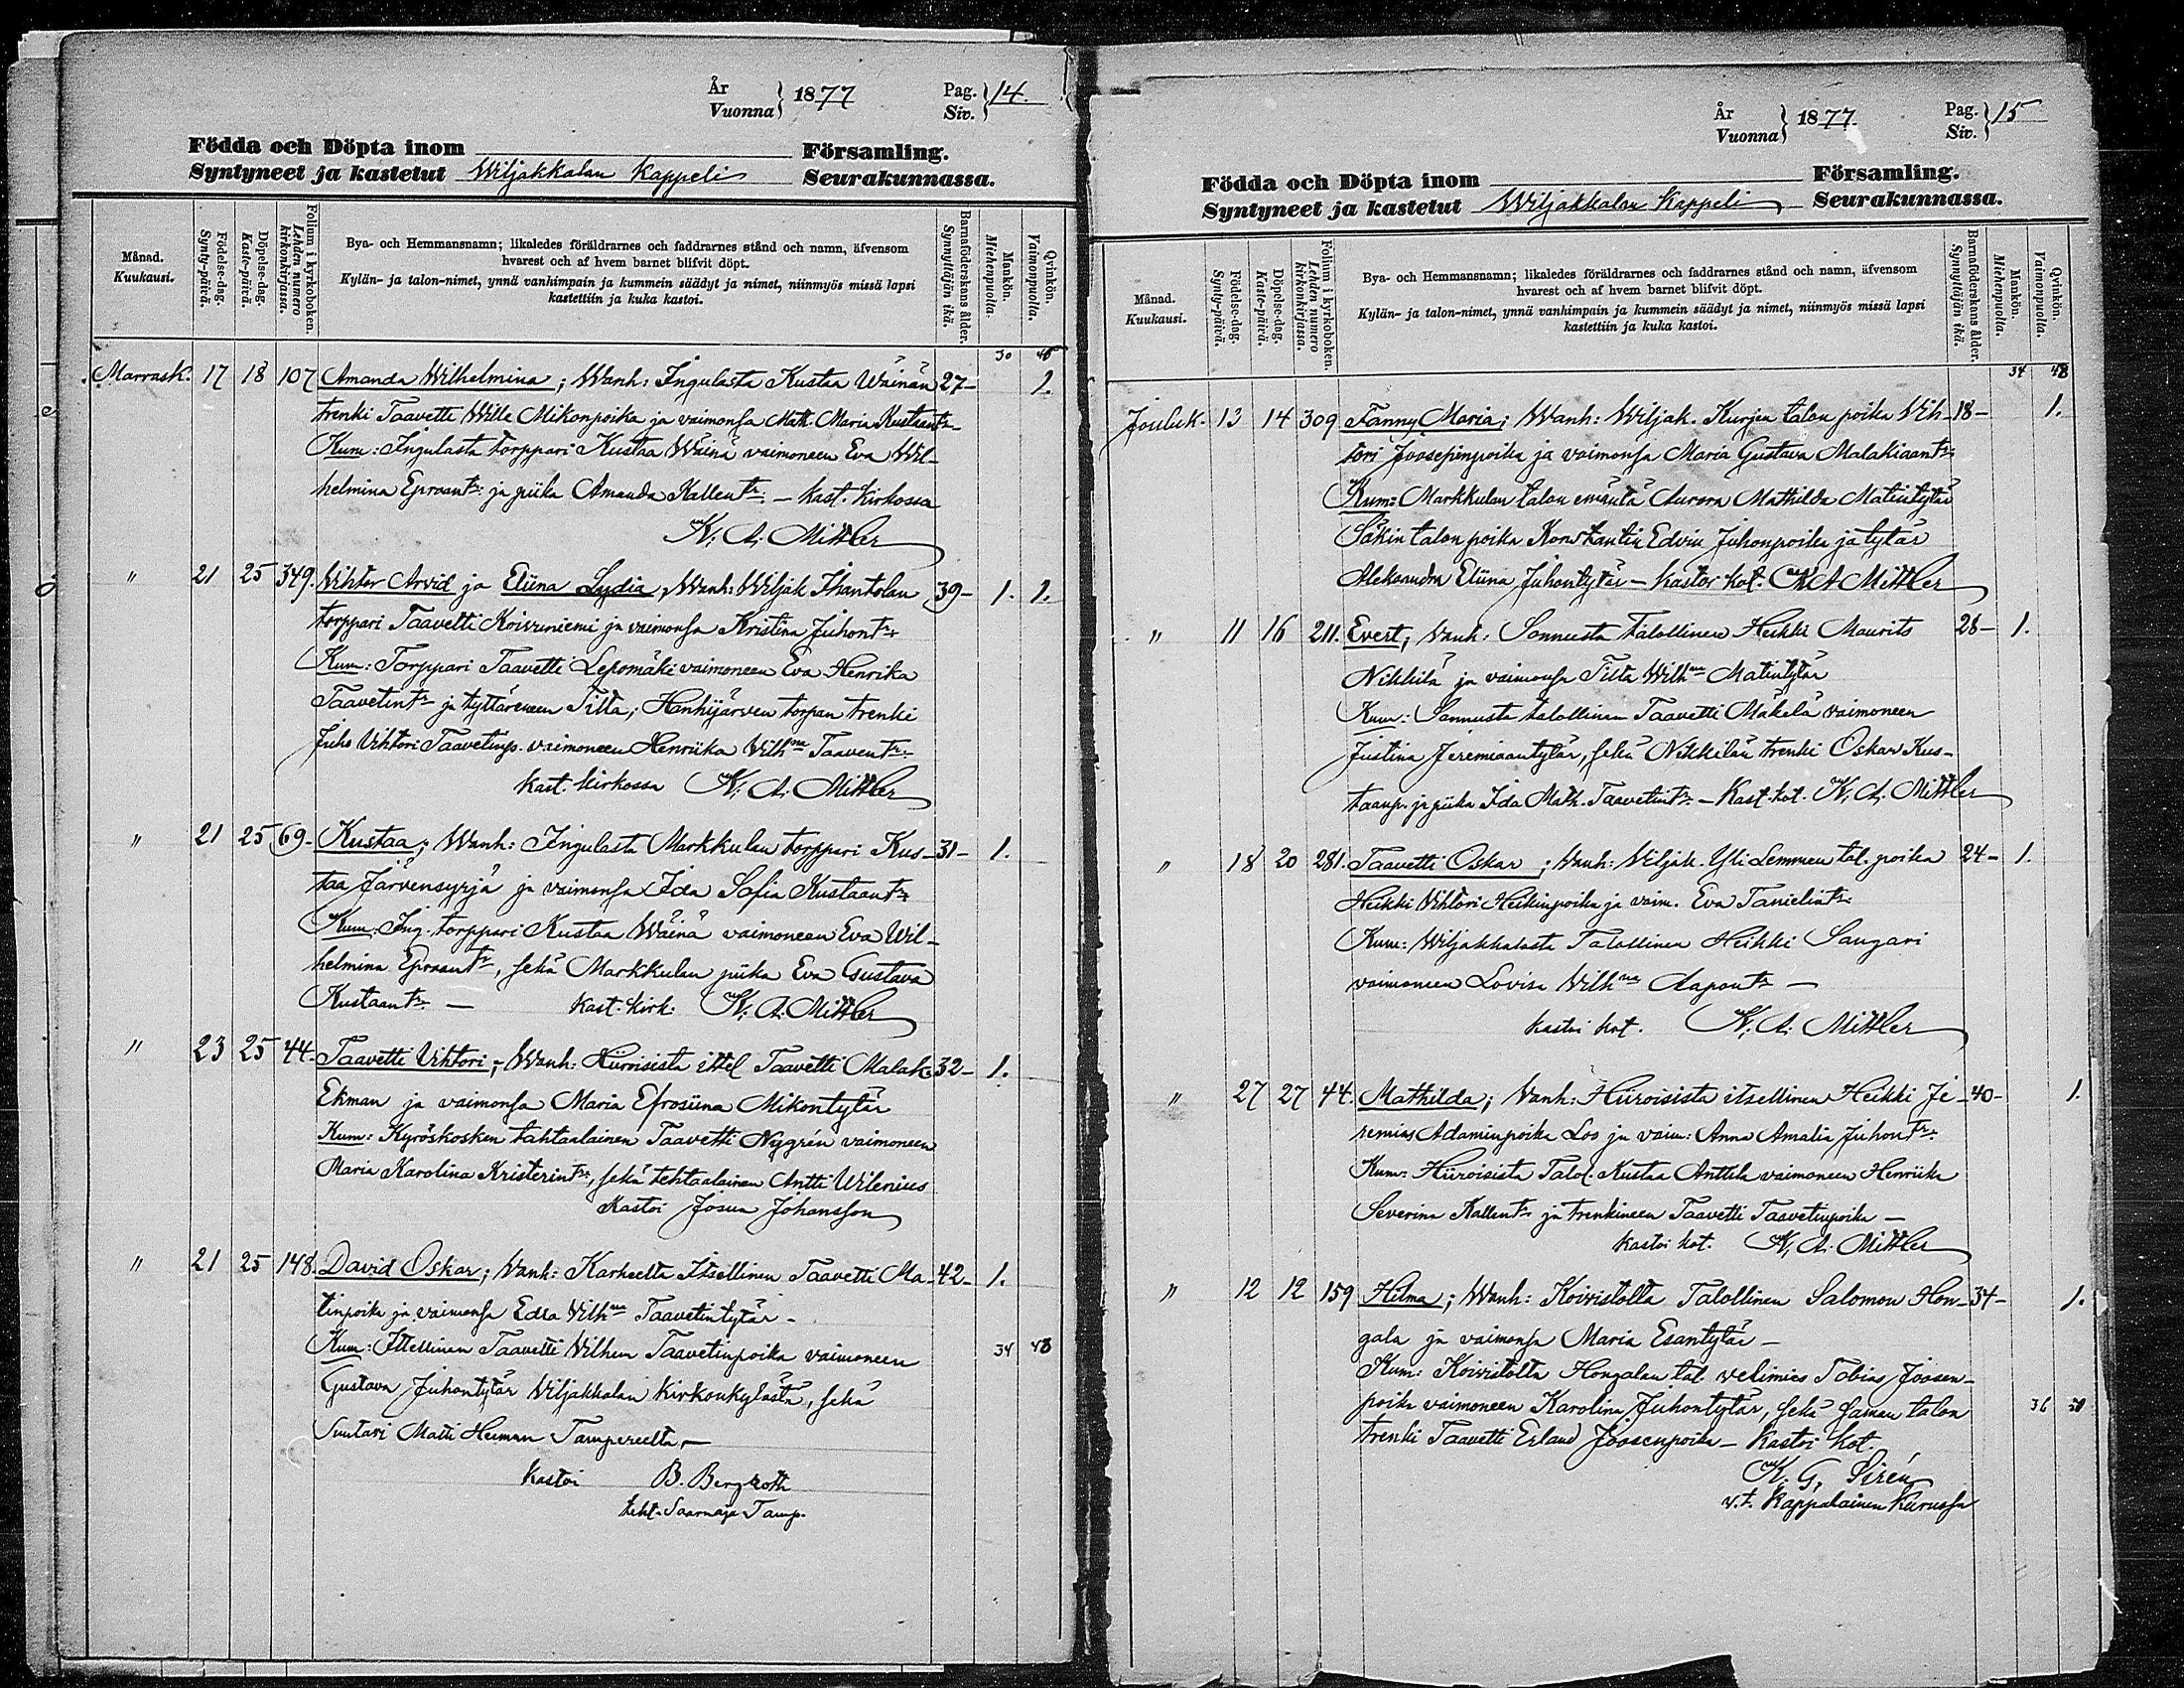 År
Vuonna } 1877 Pag.
Siv. } 14.
Födda och Döpta inom Församling.
Syntyneet ja kastetut Wiljakkalan Kappeli Seurakunnassa.
Månad.
Kuukausi.
Födelse-dag.
Synty-päivä.
Döpelse-dag.
Kaste-päivä.
Folium i kyrkoboken.
Lehden numero kirkonkirjassa.
Bya- och Hemmansnamn; likaledes föräldrarnes och faddrarnes stånd och namn, äfvensom
hvarest och af hvem barnet blifvit döpt.
Kylän- ja talon-nimet, ynnä vanhimpain ja kummein säädyt ja nimet, niinmyös missä lapsi
kastettiin ja kuka kastoi.
Barnaföderskans ålder.
Synnyttäjän ikä.
Mankön.
Miehenpuolia.
Qvinkön.
Vaimonpuolia.
30
Marrask. 17 18 107 Amanda Wilhelmina; Wanh: Ingulasta Kustaa Wäinän 27- 1.
trenki Taavetti Wille Mikonpoika ja vaimonsa Math. Maria Kustaantr.
Kum: Ingulasta torppari Kustaa Wäinä vaimoneen Eva Wil-
helmina Eproantr: ja piika Amanda Kallentr: - kast. kirkossa
K. A. Mittler
" 21 25 349. Wihtor Arvid ja Eliina Lydia, Wanh: Wiljak Ihantolan 39- 1. 1.
torppari Taavetti Koivuniemi ja vaimonsa Kristina Juhontr.
Kum: Torppari Taavetti Lepomäki vaimoneen Eva Henrika
Taavetintr ja tyttäreneen Tilta; Hanhijärven torpan trenki
Juho Vihtori Taavetinp. vaimoneen Henriika Wilhna Taaventr:
kast. kirkossa K. A. Mittler
" 21 25 69- Kustaa; Wanh: Ingulasta Markkulan torppari Kus- 31- 1.
taa Järvensyrjä ja vaimonsa Ida Sofia Kustaantr.
Kum: Ing. torppari Kustaa Wäinä vaimoneen Eva Wil-
helmina Eproantr, sekä Markkulan piika Eva Gustava
Kustaantr - kast. kirk: K. A. Mittler
" 23 25 44- Taavetti Vihtori; Wanh: Hiiroisista ittel Taavetti Malak. 32- 1.
Ekman ja vaimonsa Maria Efrosiina Mikontytär
Kum: Kyröskosken tehtaalainen Taavetti Nygrén vaimoneen
Maria Karolina Kristerintr, sekä tehtaalainen Antti Wilenius
Kastoi Josua Johansson
" 21 25 148. David Oskar; Wanh: Karheelta Itsellinen Taavetti Ma- 42- 1.
tinpoika ja vaimonsa Edla Wilhna Taavetintytär -
Kum: Ittellinen Taavetti Wilhem Taavetinpoika vaimoneen 34 48
Gustava Juhontytär Viljakkalan kirkonkylästä, sekä
Suutari Matti Heiman Tampereelta -
kastoi B. Bergroth
teht. Saarnaja Tamp.
År
Vuonna } 1877. Pag.
Siv. } 15
Födda och Döpta inom Församling.
Syntyneet ja kastetut Wiljakkalan Kappeli Seurakunnassa.
Månad.
Kuukausi.
Födelse-dag.
Synty-päivä.
Döpelse-dag.
Kaste-päivä.
Folium i kyrkoboken.
Lehden numero kirkonkirjassa.
Bya- och Hemmansnamn; likaledes föräldrarnes och faddrarnes stånd och namn, äfvensom
hvarest och af hvem barnet blifvit döpt.
Kylän- ja talon-nimet, ynnä vanhimpain ja kummein säädyt ja nimet, niinmyös missä lapsi
kastettiin ja kuka kastoi.
Barnaföderskans ålder.
Synnyttäjän ikä.
Mankön.
Miehenpuolia.
Qvinkön.
Vaimonpuolia.
34 48
Jouluk. 13 14 309 Fanny Maria; Wanh: Wiljak. Kurjen talon poika Vih- 18- 1.
tori Joosepinpoika ja vaimonsa Maria Gustava Malakiaantr:
Kum: Markkulan talon emäntä Aurora Mathilda Matintytär
Säkin talon poika Konstantin Edvin Juhonpoika ja tytär
Aleksandra Eliina Juhontytär - kastoi kot. K A Mittler
" 11 16 211. Evert; Vanh: Sonnusta talollinen Heikki Maurits 28- 1.
Nikkilä ja vaimonsa Tilta Wilhna Matintytär
Kum: Sonnusta talollinen Taavetti Mäkelä vaimoneen
Justina Jeremiaantytär, sekä Nikkilän trenki Oskar Kus-
taanp. ja piika Ida Math. Taavetintr. - Kast. kot. K. A. Mittler
" 18 20 281. Taavetti Oskar; Vanh: Viljak. Yli Lemmen tal. poika 24- 1.
Heikki Vihtori Heikinpoika ja vaim. Eva Tanielintr.
Kum: Wiljakkalasta Talollinen Heikki Saugari
vaimoneen Lovisa Wilhna Aapontr -
kastoi kot. K. A. Mittler
" 27 27 44. Mathilda; Vanh: Hiiroisista itsellinen Heikki Je- 40- 1.
remias Adaminpoika Loo ja vaim: Anna Amalia Juhontr:
Kum: Hiiroisista Talol. Kustaa Anttila vaimoneen Henriika
Severina Kallentr ja trenkineen Taavetti Taavetinpoika -
kastoi kot. K. A. Mittler
" 12 12 159 Hilma; Wanh: Koivistolta Talollinen Salomon Hon- 34- 1.
gala ja vaimonsa Maria Esantytär -
Kum: Koivistolta Hongalan tal. velimies Tobias Joosen-
poika vaimoneen Karolina Juhontytär, sekä samen talon 36
trenki Taavetti Erland Joosenpoika - Kastoi kot.
K. G. Sirén
v.t. Kappalainen Kurussa